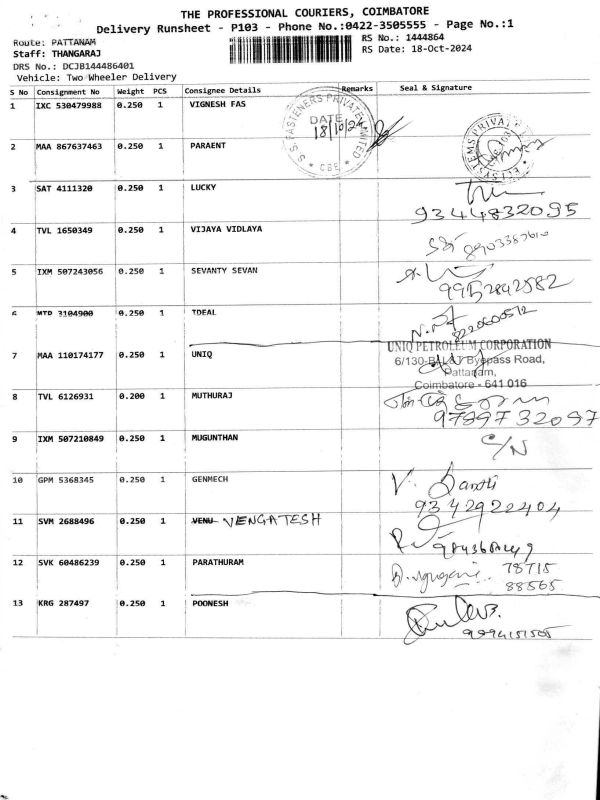 THE PROFESSIONAL COURIERS, COIMBATORE
Delivery Runsheet - P103 - Phone No.:0422-3505555 - Page No.:1
Route: PATTANAM
RS No.: 1444864
Staff: THANGARAJ
RS Date: 18-Oct-2024
DRS No.: DCJB144486401
Vehicle: Two Wheeler Delivery
S No Consignment No Weight PCS Consignee Details Remarks Seal & Signature
1 IXC 530479988 0.250 1 VIGNESH FAS
S.S. FASTENERS PRIVATE LIMITED
DATE
18/10/24
CBE
2 MAA 867637463 0.250 1 PARAENT
3 SAT 4111320 0.250 1 LUCKY
9344832095
4 TVL 1650349 0.250 1 VIJAYA VIDLAYA
5 IXM 507243056 0.250 1 SEVANTY SEVAN
9952842582
6 MTD 3104900 0.250 1 IDEAL
8220600572
7 MAA 110174177 0.250 1 UNIQ
UNIQ PETROLEUM CORPORATION
Byepass Road,
Pattanam,
Coimbatore - 641 016
8 TVL 6126931 0.200 1 MUTHURAJ
9789732097
9 IXM 507210849 0.250 1 MUGUNTHAN
C/N
10 GPM 5368345 0.250 1 GENMECH
9342922404
11 SVM 2688496 0.250 1 VENU VENGATESH
12 SVK 60486239 0.250 1 PARATHURAM
78715
88565
13 KRG 287497 0.250 1 POONESH